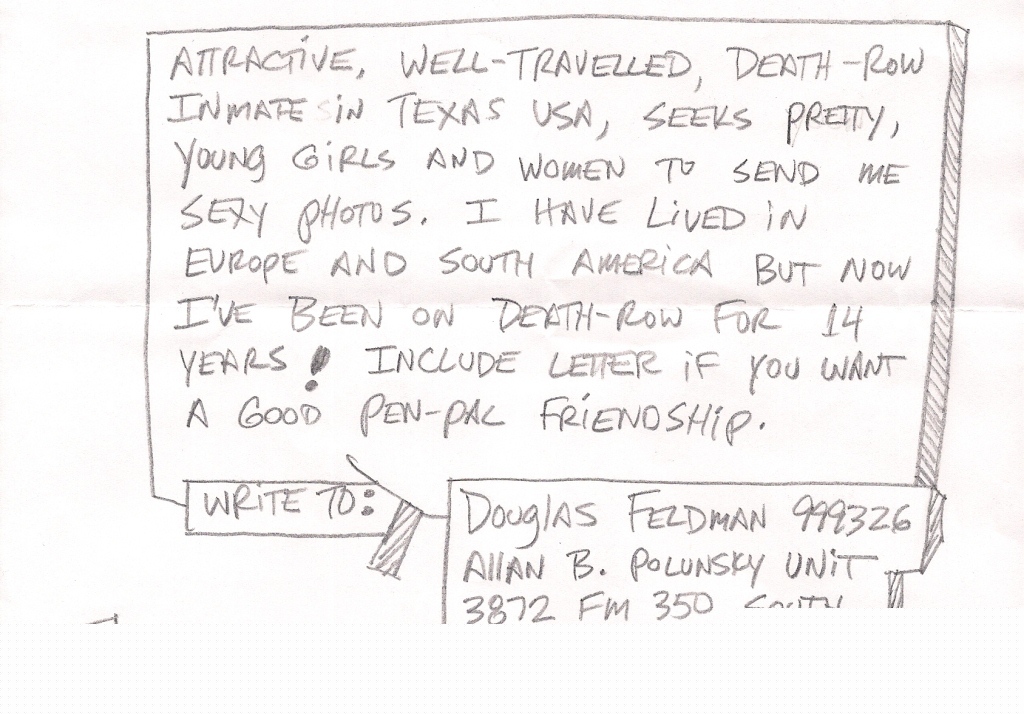 ATTRACTIVE, WELL-TRAVELLED, DEATH-ROW
INMATE IN TEXAS USA, SEEKS PRETTY,
YOUNG GIRLS AND WOMEN TO SEND ME
SEXY PHOTOS. I HAVE LIVED IN
EUROPE AND SOUTH AMERICA BUT NOW
I'VE BEEN ON DEATH-ROW FOR 14
YEARS! INCLUDE LETTER IF YOU WANT
A GOOD PEN-PAL FRIENDSHIP.
WRITE TO:
DOUGLAS FELDMAN 999326
ALLAN B. POLUNSKY UNIT
3872 FM 350 SOUTH